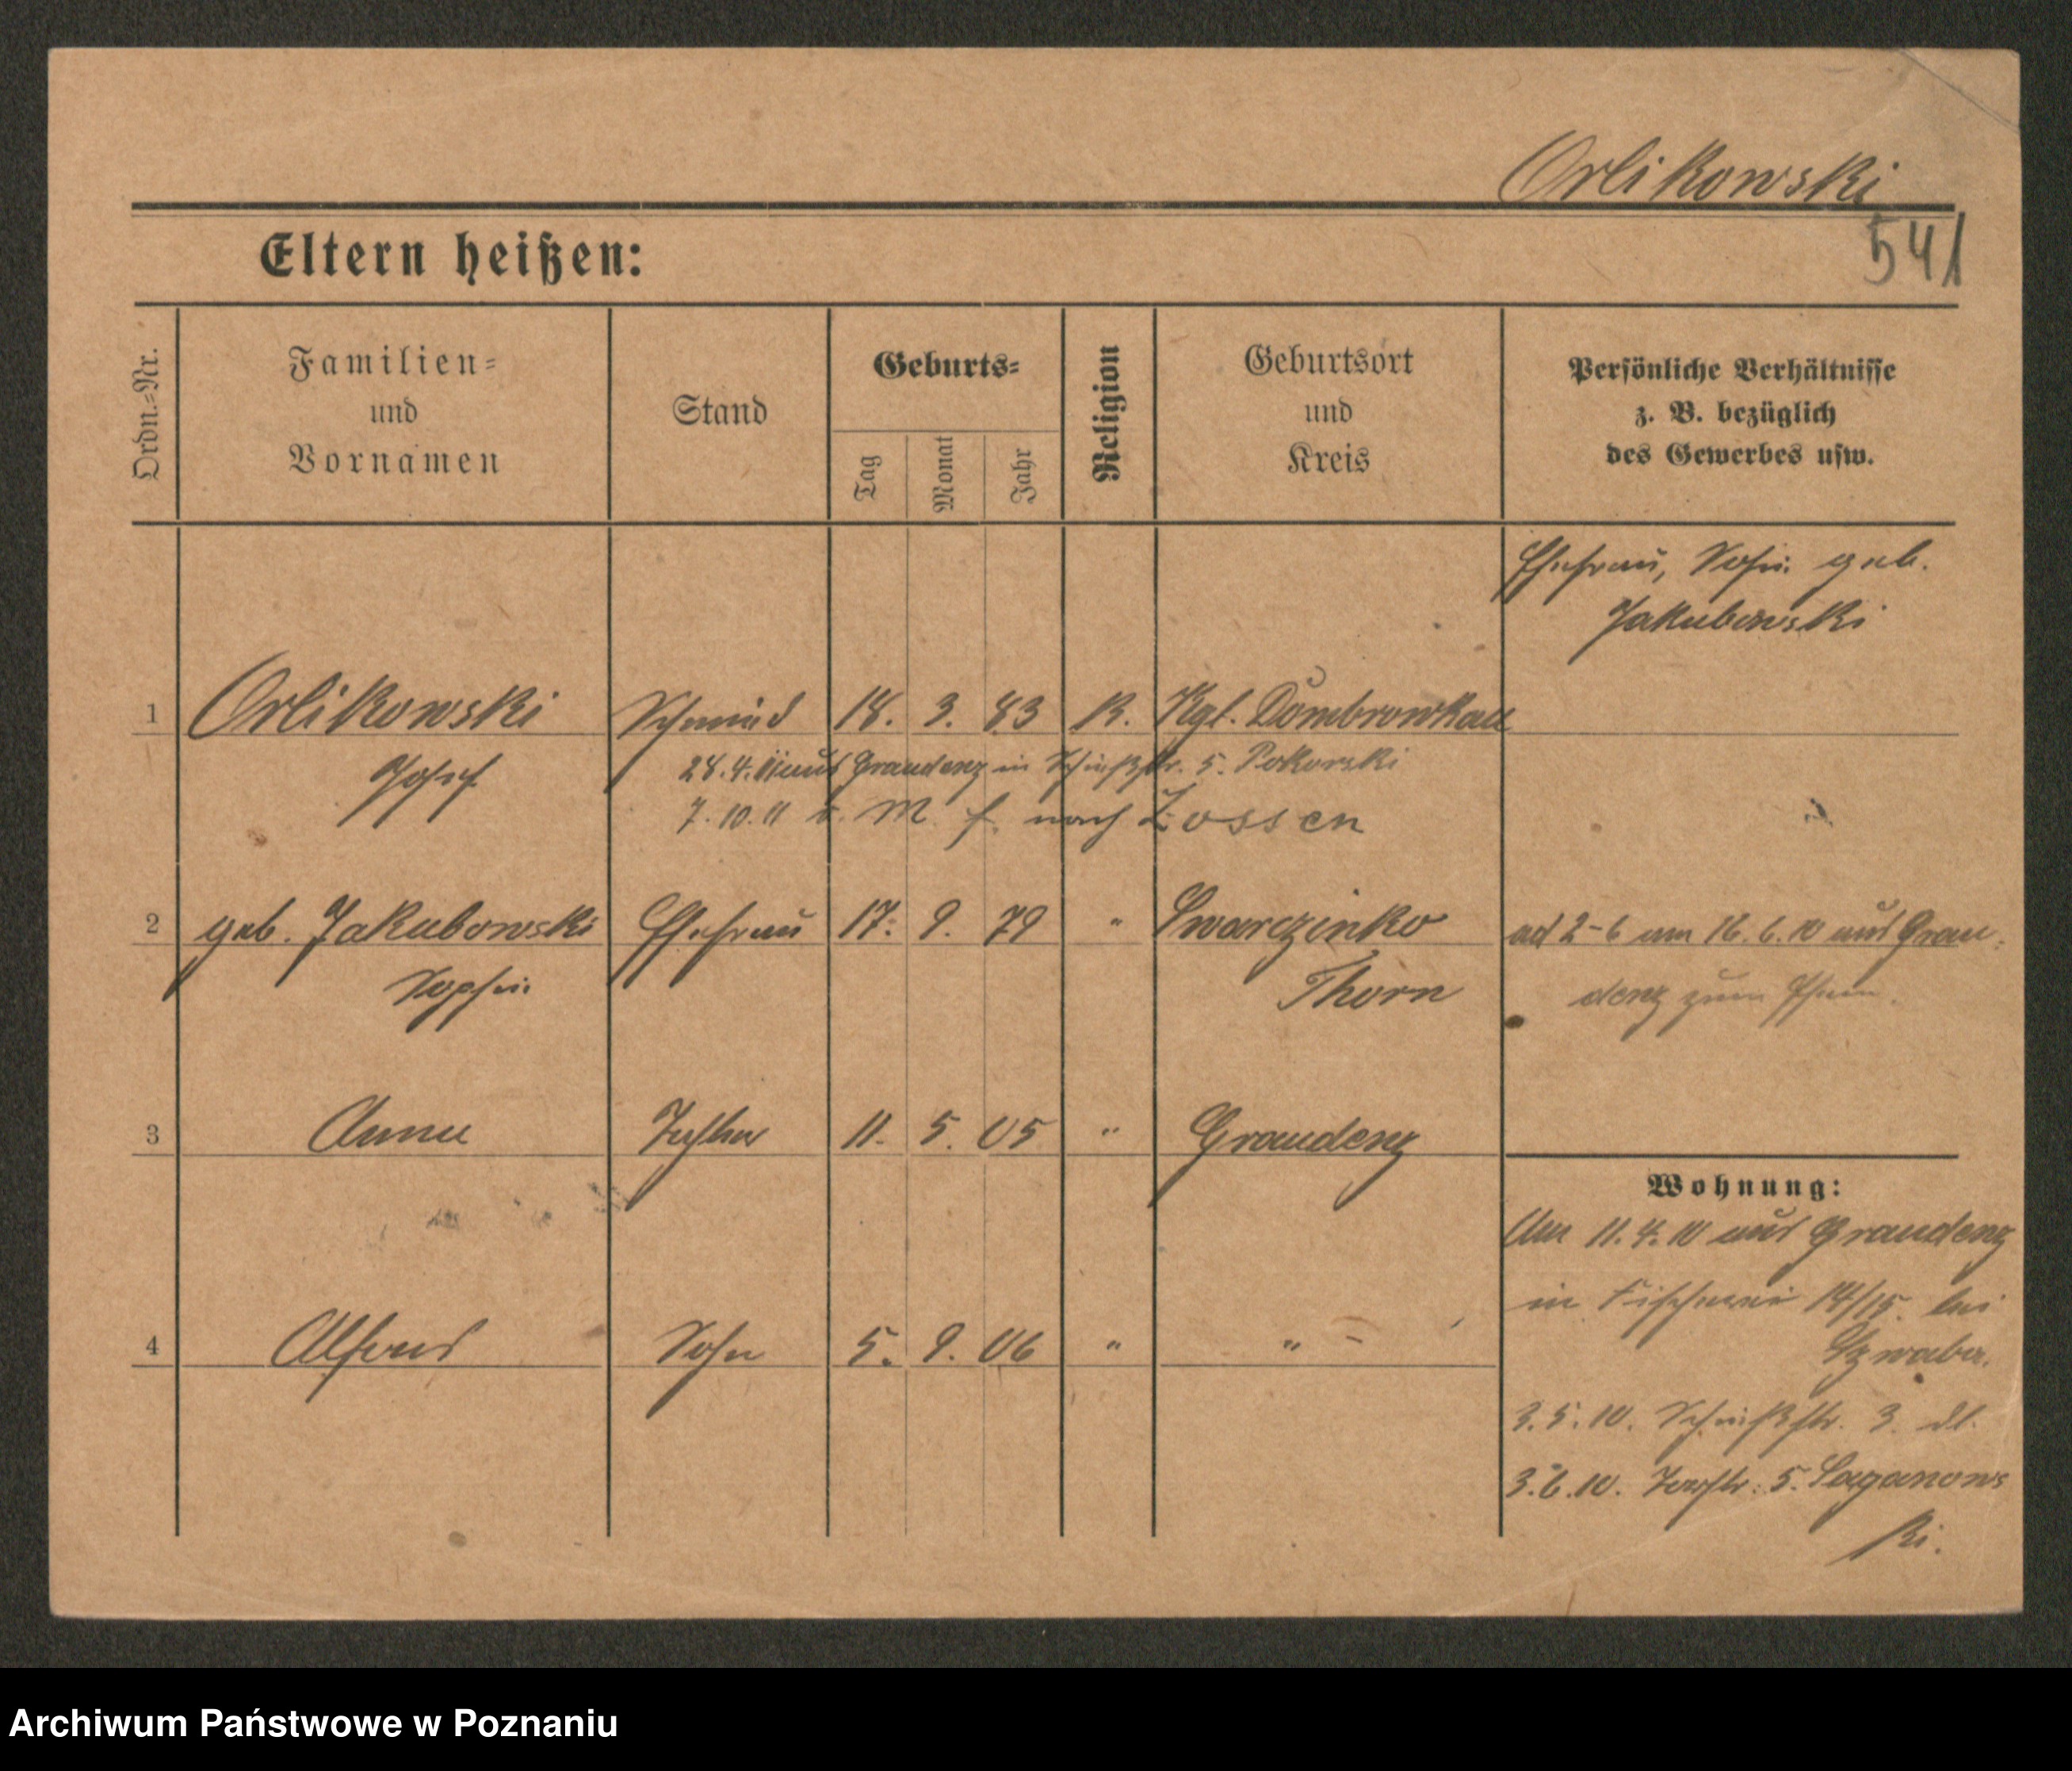 Orlikowski
541
Eltern heißen:
Ordn.-Nr.
Familien-
und
Vornamen
Stand
Geburts-
Tag
Monat
Jahr
Religion
Geburtsort
und
Kreis
Persönliche Verhältnisse
z. B. bezüglich
des Gewerbes usw.
Ehefrau, geb.
Jakubowski
1 Orlikowski Schmied 18. 3. 83 K. Kgl. Dombrowken
Josef
28.4.11 aus Graudenz in Schießstr. 5. Pokorski
7.10.11 v. M. f. nach Zossen
2 geb. Jakubowski Ehefrau 17. 9. 79 " Swarczinko
Sophie Thorn
ad 2-6 am 16.6.10 aus Grau-
denz zum Ehem.
3 Anna Tochter 11. 5. 05 " Graudenz
4 Alfons Sohn 5. 9. 06 " " -
Wohnung:
Am 11.4.10 aus Graudenz
in Fischerei 14/15 bei
Szwaba.
3.5.10. Schießstr. 3. dl.
3.6.10. 5. Laganows
ki.
Archiwum Państwowe w Poznaniu